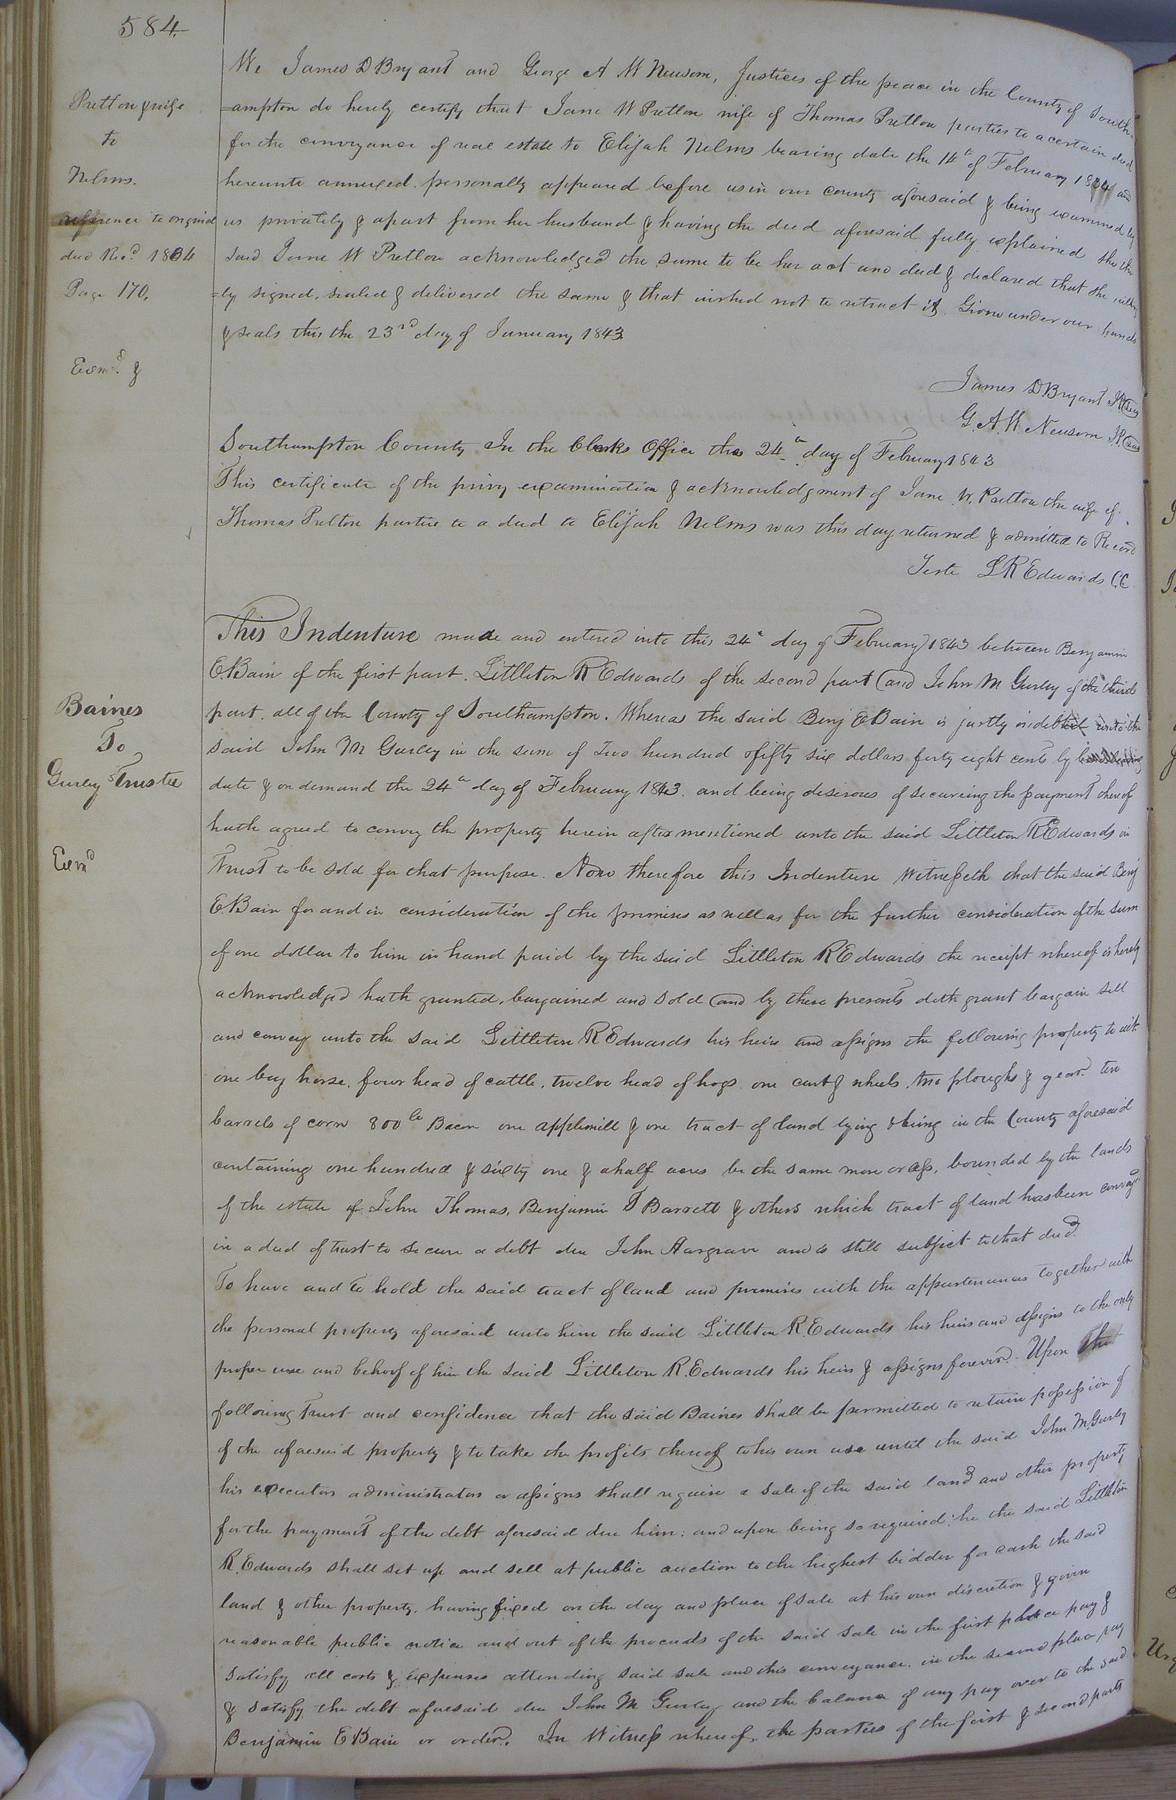 584.
We James D Bryant and George A W Newsom, Justices of the peace in the County of South
=ampton do hereby certify that Jane W Pretlow wife of Thomas Pretlow parties to a certain deed
for the conveyance of real estate to Elijah Nelms bearing date the 14th of February and
hereunto annexed personally appeared before us in our county aforesaid & being examined by
us privately & apart from her husband & having the deed aforesaid fully explained she the
said Jane W Pretlow acknowledged the same to be her act and deed & declared that she willing
=ly signed, sealed & delivered the same & that wished not to retract it. Given under our hands
& seals this the 23rd day of January 1843
Pretlow & wife
to
Nelms.
reference to original
deed Recd 1834
Page 170,
Exmd. &
James D Bryant JP Seal
G. A. W Newsom JP Seal
Southampton County In the Clerks Office the 24th day of February 1843
This certificate of the privy examination & acknowledgment of Jane W. Pretlow the wife of
Thomas Pretlow parties to a deed to Elijah Nelms was this day returned & admitted to Record
Teste L R Edwards C.C
This Indenture made and entered into this 24th day of February 1843 between Benjamin
E Bain of the first part. Littleton R Edwards of the second part and John M Gurley of the third
part. all of the County of Southampton. Whereas the said Benj E Bain is justly indebted unto the
said John M Gurley in the sum of Two hundred & fifty six dollars forty eight cents by
date & on demand the 24th day of February 1843. and being desirous of securing the payment thereof
hath agreed to convey the property herein after mentioned unto the said Littleton R Edwards in
Trust to be sold for that purpose. Now therefore this Indenture Witnesseth that the said Benj
E Bain for and in consideration of the premises as well as for the further consideration of the sum
of one dollar to him in hand paid by the said Littleton R Edwards the receipt whereof is hereby
acknowledged hath granted, bargained and sold and by these presents doth grant bargain sell
and convey unto the said Littleton R Edwards his heirs and assigns the following property to wit
one bay horse, four head of cattle, twelve head of hogs one cart & wheels, two ploughs & gear ten
barrels of corn 800 lb Bacon one applemill & one tract of land lying & being in the County aforesaid
containing one hundred & sixty one & a half acres be the same more or less, bounded by the lands
of the estate of John Thomas, Benjamin Barrett & others which tract of land has been conveyed
in a deed of trust to secure a debt due John Hargrave and is still subject to that deed.
To have and to hold the said tract of land and premises with the appurtenances together with
the personal property aforesaid unto him the said Littleton R. Edwards his heirs and assigns to the only
proper use and behoof of him the said Littleton R. Edwards his heirs & assigns forever. Upon the
following Trust and confidence that the said Baines shall be permitted to retain possession of
of the aforesaid property & to take the profits thereof to his own use until the said John M. Gurley
his executors administrators or assigns shall require a sale of the said land and other property
for the payment of the debt aforesaid due him: and upon being so required: he the said Littleton
R. Edwards shall set up and sell at public auction to the highest bidder for cash the said
land & other property, having fixed on the day and place of sale at his own discretion & given
reasonable public notice and out of the proceeds of the said sale in the first place pay &
satisfy all costs & expenses attending said sale and this conveyance. in the second place pay
& satisfy the debt aforesaid due John M Gurley and the balance if any pay over to the said
Benjamin E Bain or order. In Witness whereof, the parties of the first & second parts
Baines
To
Gurley's Trustee
Exmd